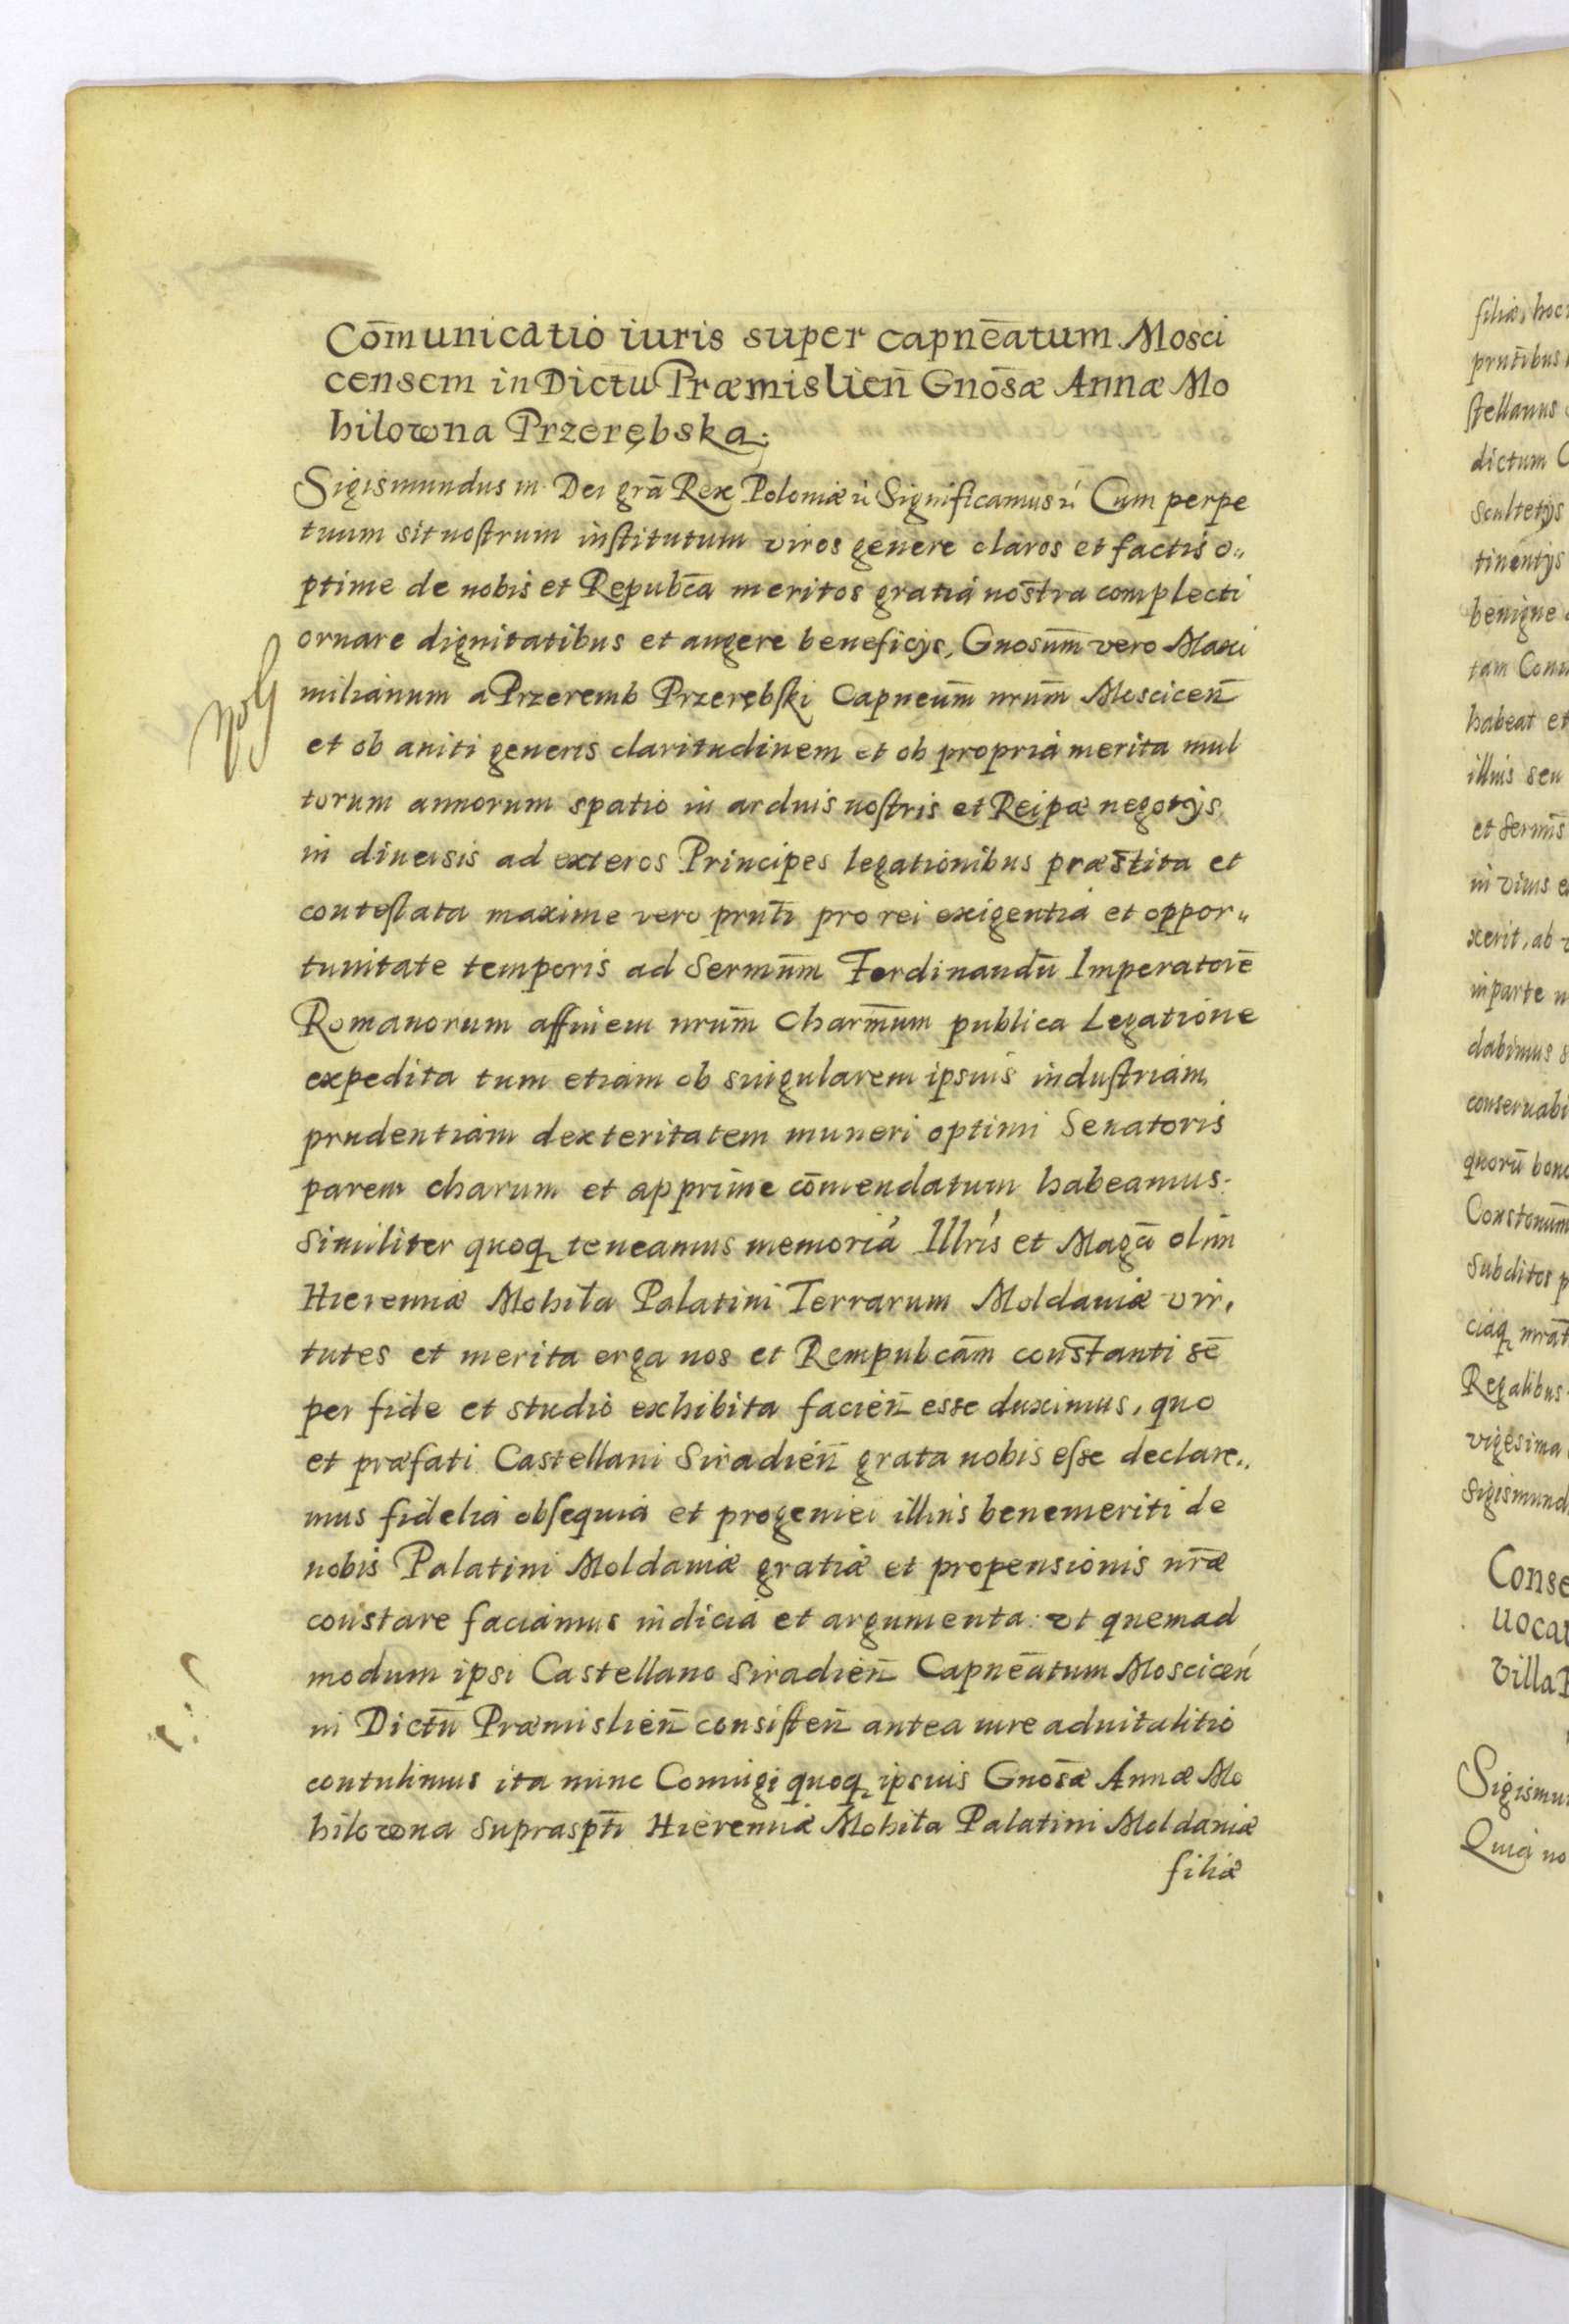 Co̅municatio iuris super capne̅atum Mosci
censem in Dictu̅ Præmislien̅ Gno̅sæ Annæ Mo
hilowna Przerębska;
Sigismundus III Dei gra̅ Rex Poloniæ Significamus Cum perpe
tuum sit nostrum institutum viros genere claros et factis o„
ptime de nobis et Repubca̅ meritos gratia nostra complecti
ornare dignitatibus et augere beneficys, Gnosum̅ vero Maxi
milianum a Przeremb Przerębski Capneum̅ nrum̅ Moscicen̅
et ob aviti generis claritudinem et ob propria merita mul
torum annorum spatio in arduis nostris et Reipæ negotys,
in diuersis ad exteros Principes legationibus præstita et
contestata maxime vero prnti̅ pro rei exigentia et oppor„
tunitate temporis ad Sermum̅ Ferdinandu̅ Imperatore̅
Romanorum affinem nrum̅ Charmum̅ publica Legatione
expedita tum etiam ob singularem ipsius industriam,
prudentiam dexteritatem muneri optimi Senatoris
parem charum et apprime co̅mendatum habeamus.
Similiter quoq teneamus memoria Illris et Maga̅ olim
Hieremiæ Mohiła Palatini Terrarum Moldauiæ vir,
tutes et merita erga nos et Rempubcam̅ constanti se̅
per fide et studio exhibita facien̅ esse duximus, quo
et præfati Castellani Siradien̅ grata nobis esse declare„
mus fidelia obsequia et progeniei illius benemeriti de
nobis Palatini Moldauiæ gratiæ et propensionis nr̅æ
constare faciamus indicia et argumenta: vt quemad
modum ipsi Castellano Siradien̅ Capne̅atum Moscicen
in Dictu̅ Præmislien̅ consisten̅ antea iure aduitalitio
contulimus ita nunc Coniugi quoq ipsius Gnos̅æ Annæ Mo
hilowna supraspti̅ Hieremiæ Mohiła Palatini Moldauiæ
filiæ
filiæ, hoc
prntibus
stellanus
dictum
Scultetys
tinentys
benigne
tam
habeat et
illius seu
et
in viuis
xerit, ab
in parte
dabimus
conseruabi
quoru̅
subditos
ciaq
Regalibus
vigesima
Sigismund
Conse
uoca
Villa
Sigismu
Quia no